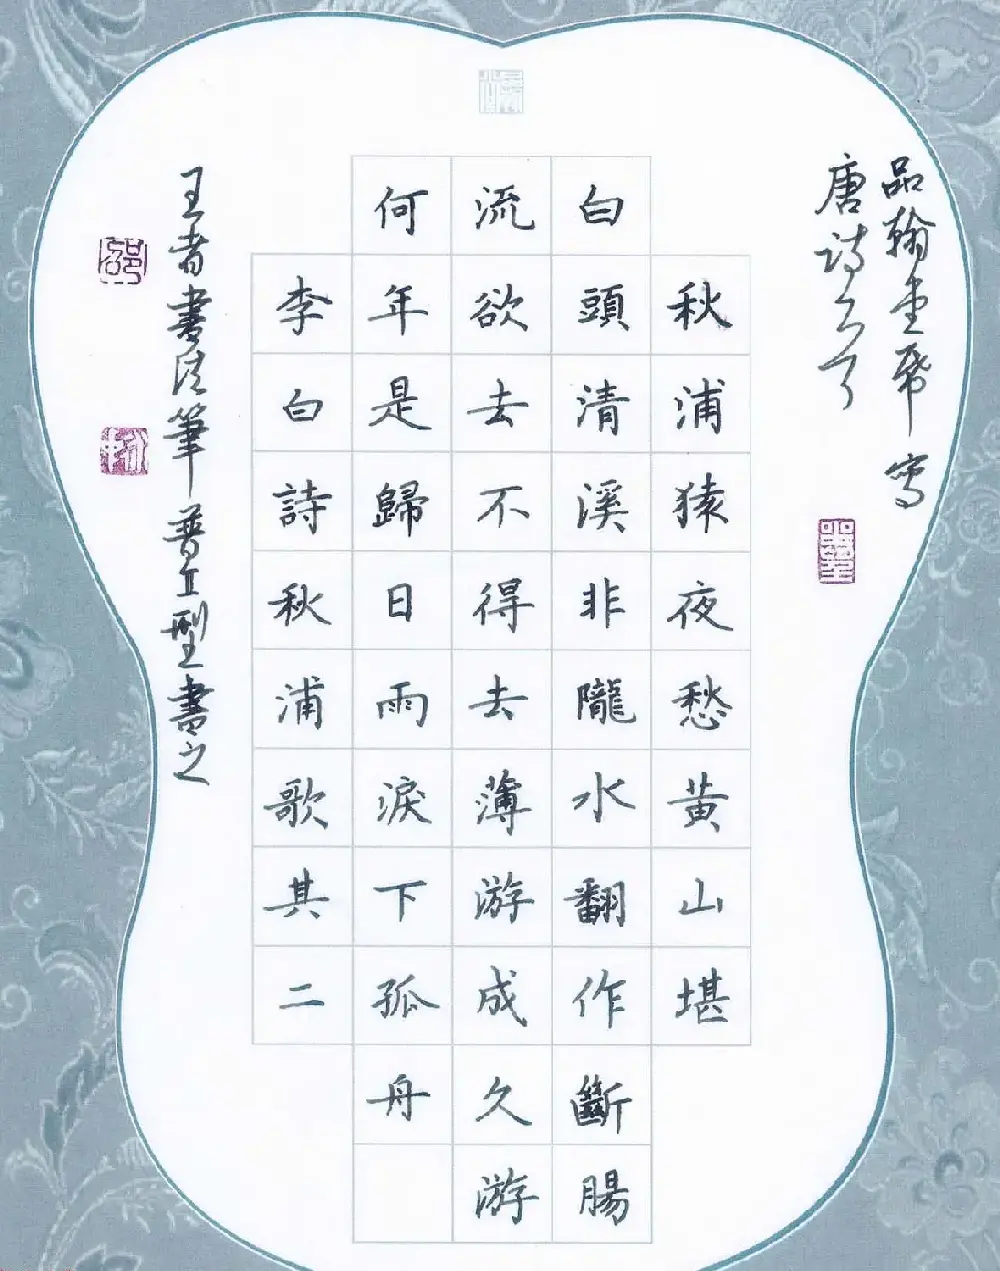 品翰堂幣寫
唐詩
秋浦猿夜愁黃山堪
白頭清溪非隴水翻作斷腸
流欲去不得去薄游成久游
何年是歸日雨淚下孤舟
李白詩秋浦歌其二
王者書法筆普及型書之